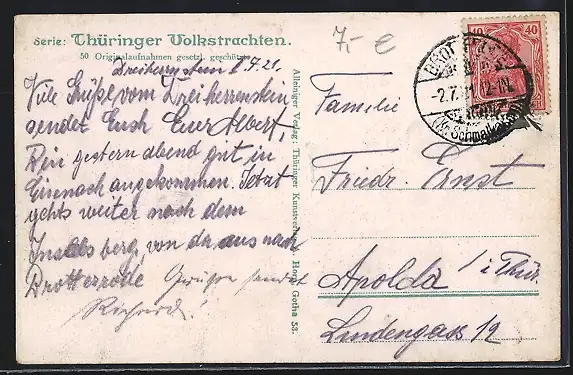 Serie: Thüringer Volkstrachten.
50 Originalaufnahmen gesetzl. geschützt.
Dreiherrnstein 2.7.21.
Viele Grüße vom Dreiherrenstein
sendet Euch Euer Albert,
Bin gestern abend gut in
Eisenach angekommen. Jetzt
gehts weiter nach dem
Inselsberg, von da aus nach
Brotterode
sendet
Richard!
Alleiniger Verlag: Thüringer Kunstverlag Gotha 53.
7,- €
40 40
2.7.21
Schmalkalden
Familie
Friedr. Ernst
Apolda / i Thür.
Lindengass 12